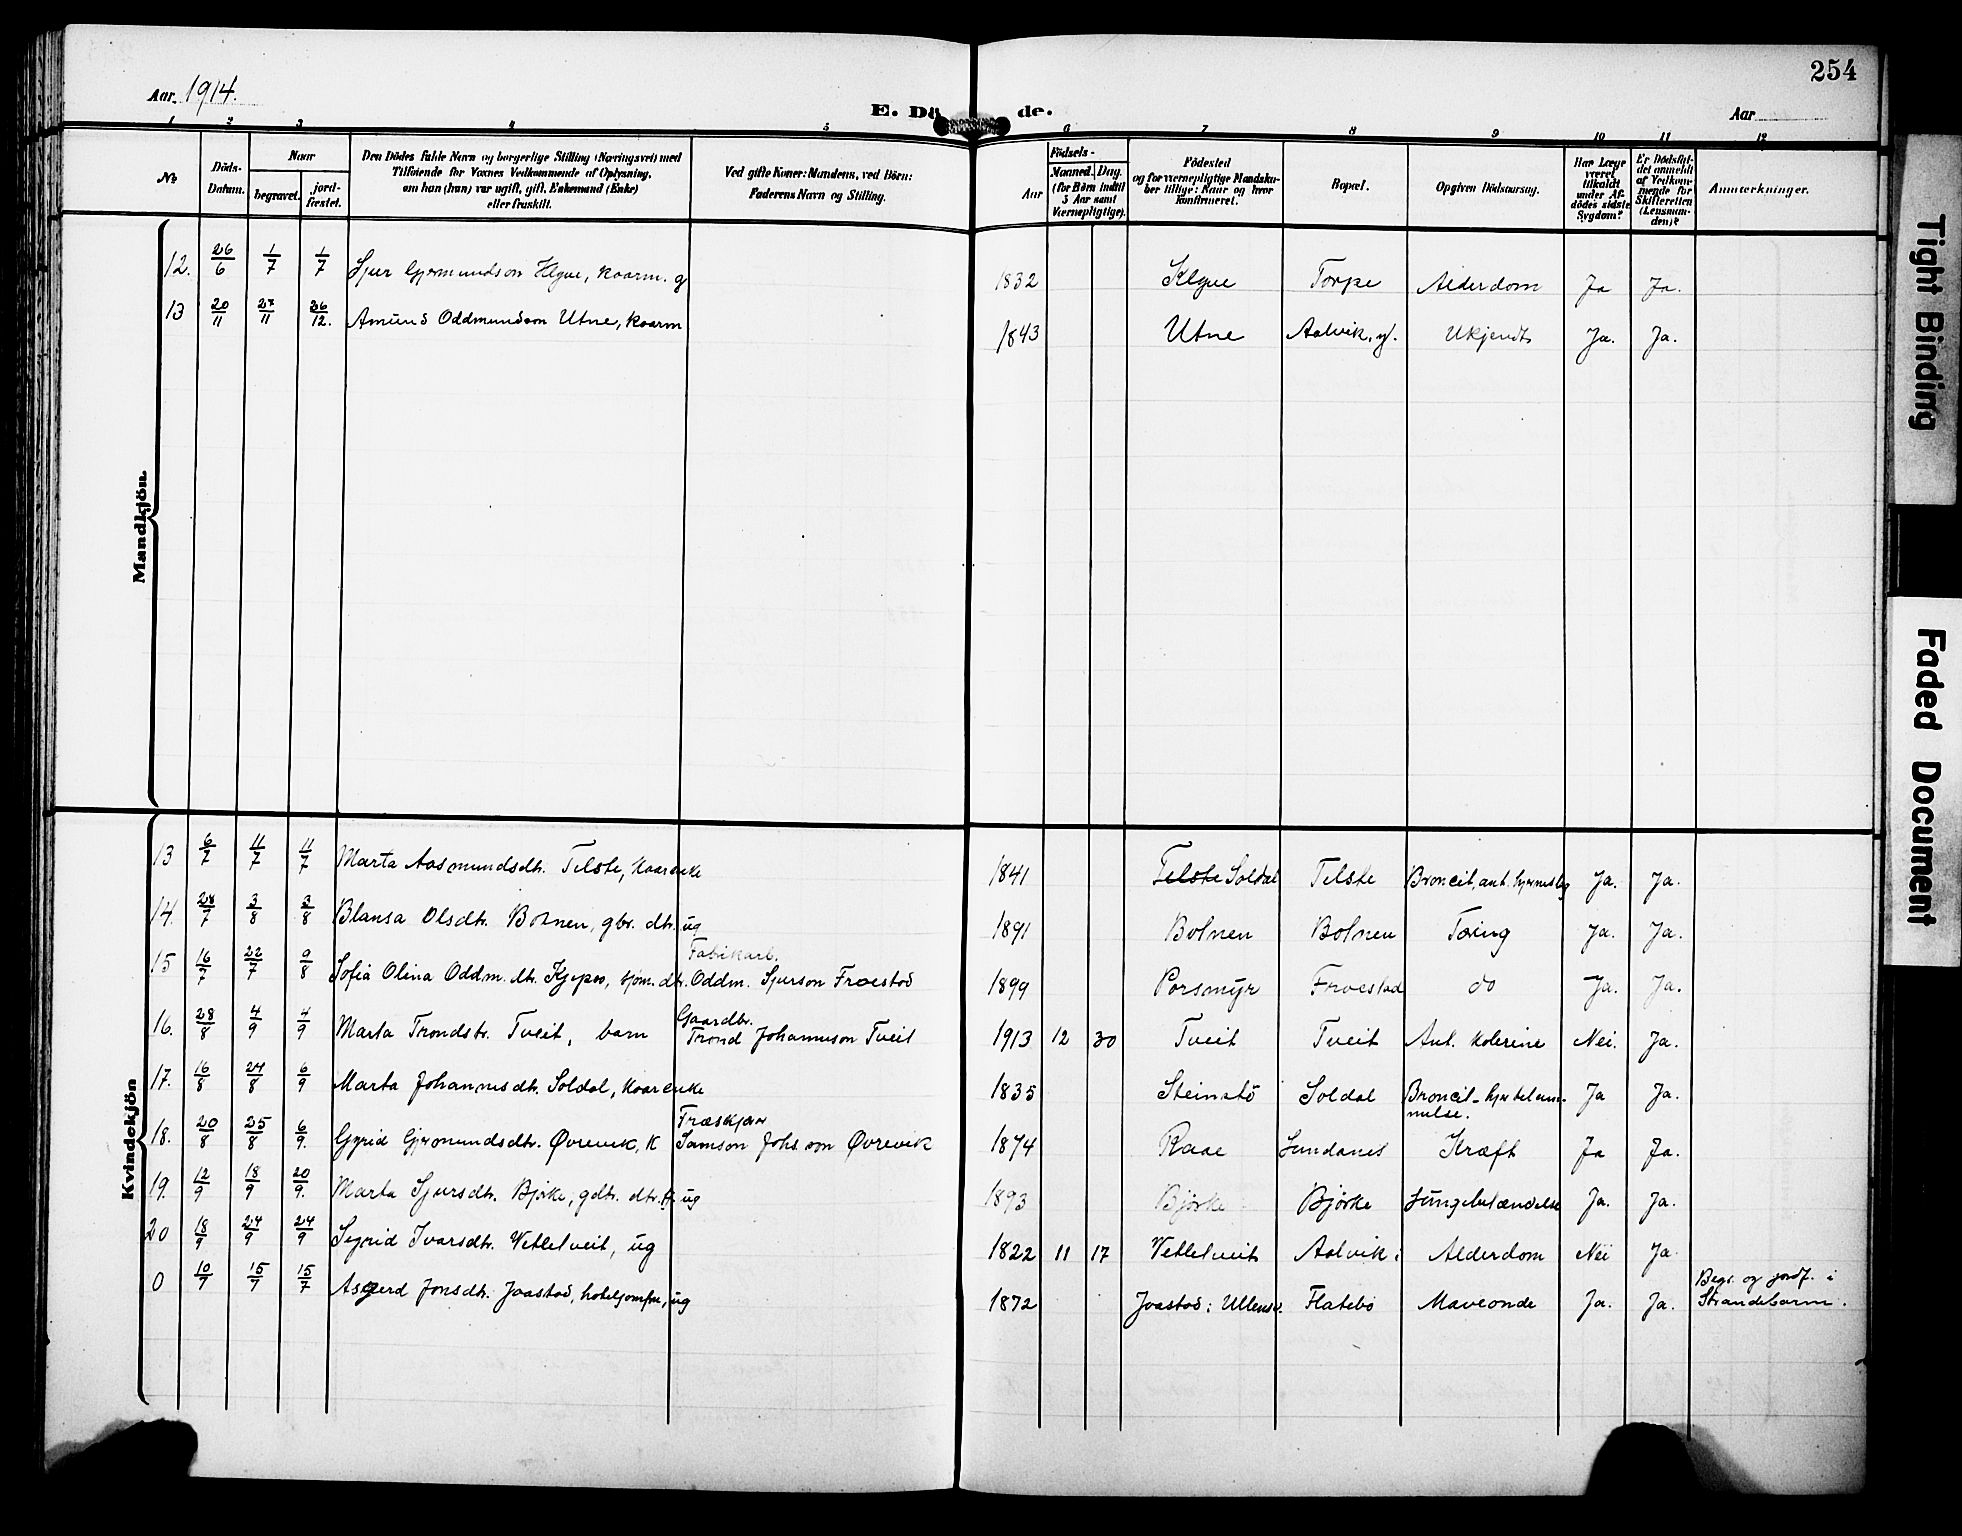 254
Aar 1914.
E. Dö de.
Aar
1 2 3 4 5 6 7 8 9 10 11 12
No
Döds-Datum.
Naar
begravet.
jord-fæstet.
Den Dödes fulde Navn og borgerlige Stilling (Næringsvei) med
Tilföiende for Voxnes Vedkommende af Oplysning,
om han (hun) var ugift, gift, Enkemand (Enke)
eller fraskilt.
Ved gifte Koner: Mandens, ved Börn:
Faderens Navn og Stilling.
Födsels-
Aar
Maaned. Dag.
(for Börn indtil
5 Aar samt
Værnepligtige).
Födested
og for værnepligtige Mandskaber tillige: Naar og hvor
konfirmeret.
Bopæl.
Opgiven Dödsaarsag.
Har Læge
været
tilkaldt
under Afdödes sidste
Sygdom?
Er Dödsfaldet anmeldt
af Vedkommende for
Skifteretten
(Lensmanden)?
Anmærkninger.
Mandkjön.
12. 26/6 1/7 1/7 Sjur Gjermundson Klyve, kaarm. g 1832 Klyve Torpe Alderdom Ja Ja.
13 20/11 27/11 26/12. Amund Oddmundson Utne, kaarm 1843 Utne Aalvik, y. Ukjendt Ja. Ja.
Kvindekjön
13 6/7 11/7 11/7 Marta Aasmundsdtr. Telste, kaarenke 1841 Telste Soldal Telste Broncit, ant. hjerneslag Ja. Ja.
14. 28/7 3/8 3/8 Blansa Olsdtr. Botnen, gbr. dtr. ug 1891 Botnen Botnen Tæring Ja. Ja.
15 16/7 22/7 9/8 Sofia Olina Oddm. dtr. Kjepso, tjom. dtr. Fabrikarb. Oddm. Sjurson Froestad 1899 Porsmyr Froestad do Ja. Ja.
16. 28/8 4/9 4/9 Marta Trondstr. Tveit, barn Gaardbr. Trond Johannesson Tveit 1913 12 30 Tveit Tveit Ant. kolerine Nei. Ja.
17. 16/8 24/8 6/9 Marta Johannesdtr. Soldal, kaarenke 1835 Steinstö Soldal Broncit- hjertelammelse. Ja Ja.
18. 20/8 25/8 6/9. Gyrid Gjermundsdtr. Øvrevik, K Træskjær Samson Johs.son Øvrevik 1874 Raae Sundanes Kræft Ja Ja.
19. 12/9 18/9 20/9. Marta Sjursdtr. Bjørke, gdtr. dtr. ug 1893 Björke Björke Lungebetændelse Ja. Ja.
20 18/9 24/9 24/9 Sigrid Ivarsdtr. Vetletveit, ug 1822 11 17 Vetletveit Aalvik Alderdom Nei Ja
0 10/7 15/7 15/7 Asgerd Jonsdtr. Jaastad, hoteljomfru, ug 1872 Jaastad: Ullensv. Flatebö Maveonde Ja. Ja. Begr. og jordf. i Strandebarm.
Tight Binding
Faded Document